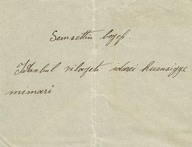 Semsettin
Istanbul vilayeti idarei hususiyye
mimari